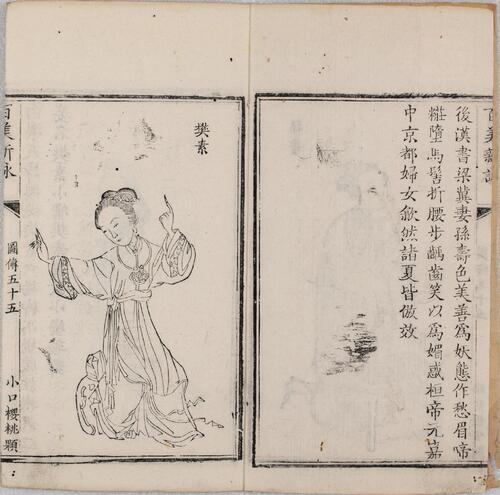 後漢書梁冀妻孫壽色美善爲妖態作愁眉啼
糚墮馬髻折腰步齲齒笑以爲媚惑桓帝元嘉
中京都婦女歙然諸夏皆倣效
樊素
百美新詠
圖傳五十五
小口櫻桃顆